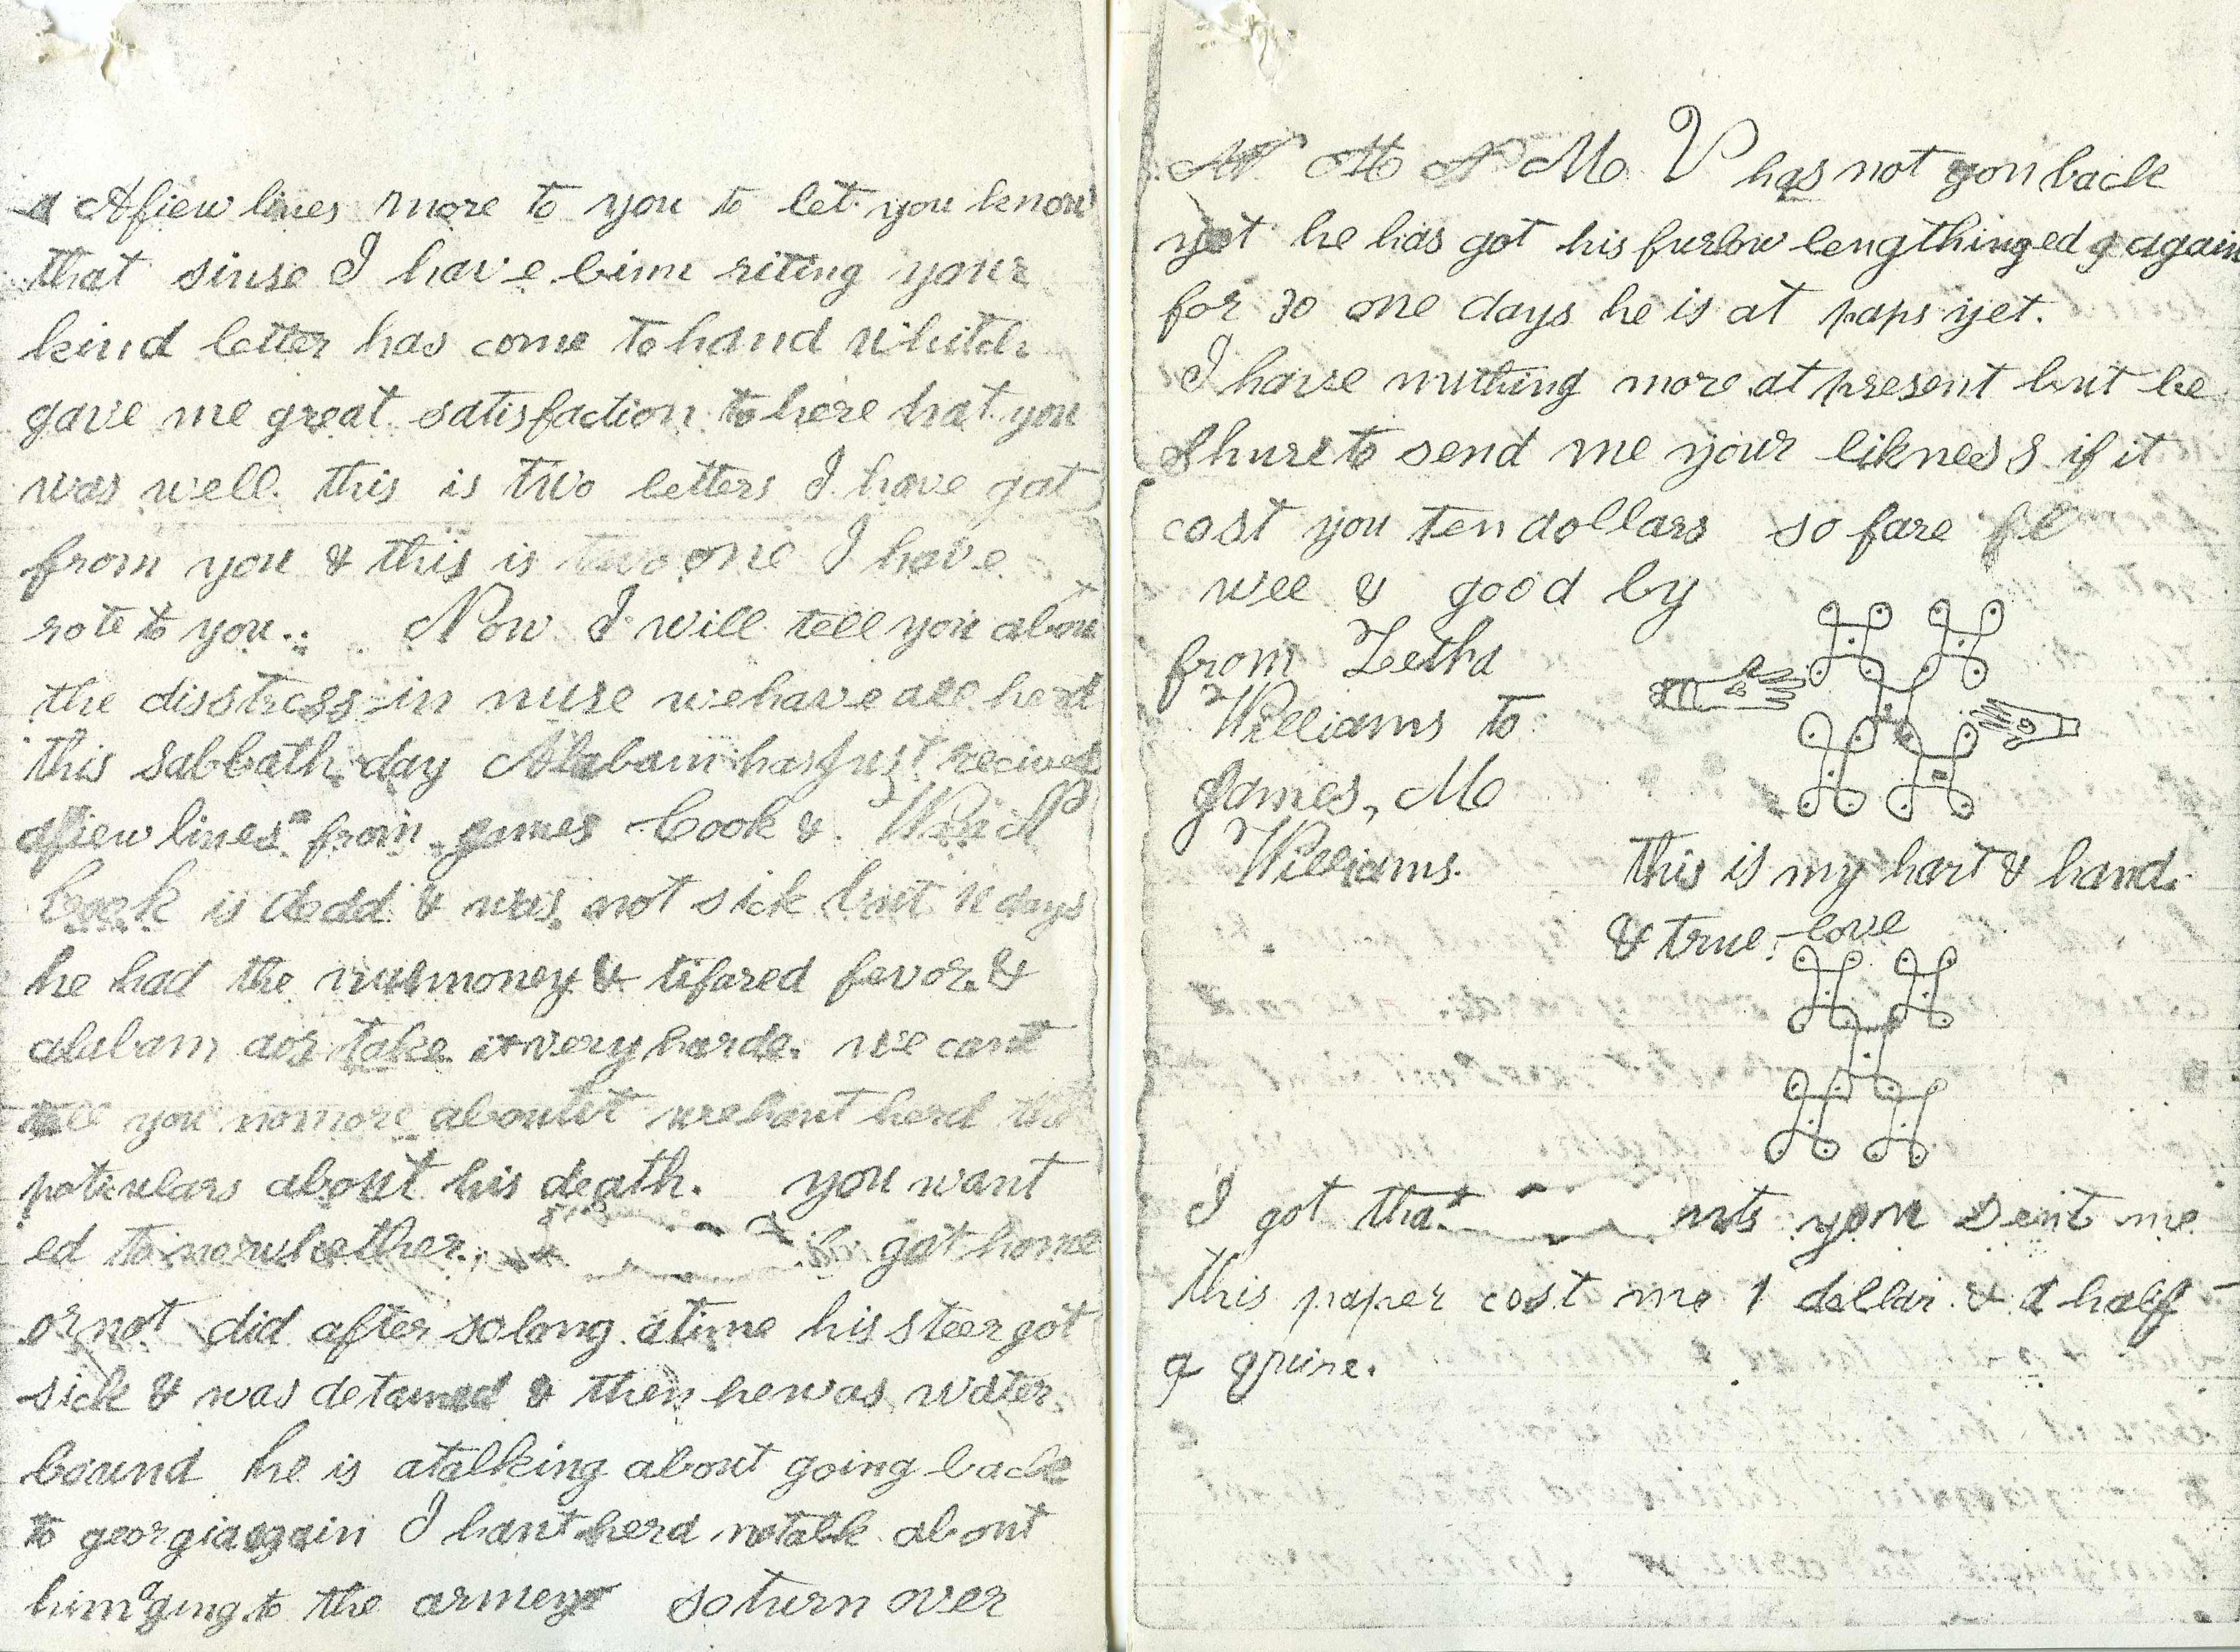 A fiew lines more to you to let you know
that sinse I have binn riting your
kind letter has come to hand whitch
gave me great satisfaction to here hat you
was well. this is two letters I have got
from you & this is two one I have
rote to you. Now I will tell you abou
the disstress in nuse we have all herd
this sabbath day Alabam has just recived
a fiew lines from James Cook &
Cook is dedd & was not sick but 11 days
he had the numoney & tifared fevor. &
alabam dos take it very harde. we cant
tell you no more about it we hant herd the
poticulars about his death. you want
ed to no whether got home
or not did after so long a time his steer got
sick & was detained & then he was water
bound he is a talking about going back
to georgia again I hant herd no talk about
him a ging to the armey so turn over
M. V has not gon back
yet he has got his furlow lengthinged again
for 30 one days he is at paps yet.
I have nuthing more at present but be
Shure to send me your likness if it
cost you ten dollars so fare
well & good by
from Letha
Williams to
James, M
Williams.
this is my hart & hand.
& true love
I got tha you sent me
this paper cost me 1 dollar & a half
a quire.